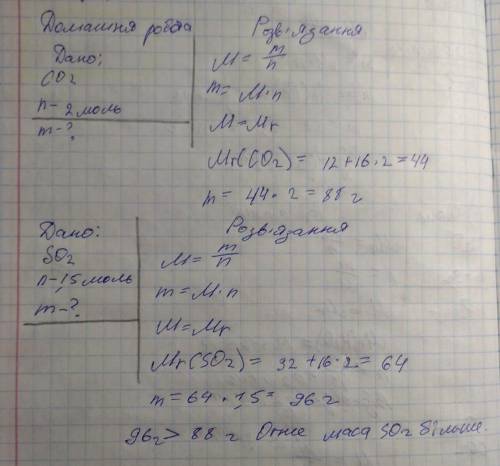 Домашня робота
Розв'язання
Дано:
CO2
n - 2 моль
m - ?
M = m/n
m = M · n
M = Mr
Mr(CO2) = 12 + 16 · 2 = 44
m = 44 · 2 = 88 г
Дано:
SO2
n - 1,5 моль
m - ?
Розв'язання
M = m/n
m = M · n
M = Mr
Mr(SO2) = 32 + 16 · 2 = 64
m = 64 · 1,5 = 96 г
96 г > 88 г Отже маса SO2 більше.